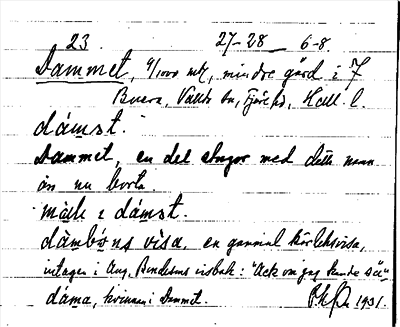 23. 27-28 6-8.
Dammet, 9/1000 mtl, mindre gård i 7
Buera, Valla sn, Fjäre hd, Hall. l.
dámst.
Dammet, en del stugor med detta namn
än nu borta.
mäık i dámst.
dàmbǫ́ns visa, en gammal kärleksvisa,
intagen i Aug. Bondesons visbok: "Ack om jag kunde så"
dáma, kvinnan i Dammet.
1931.